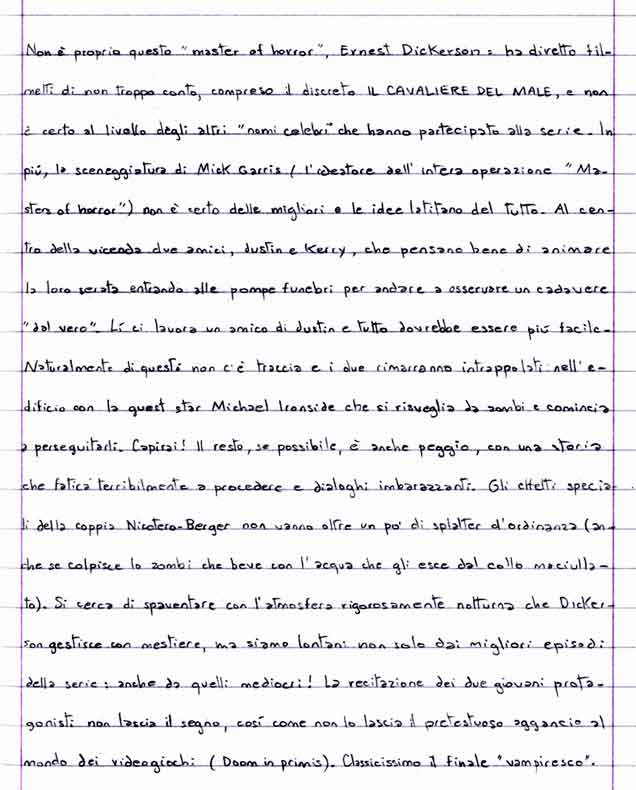 Non è proprio questo "master of horror", Ernest Dickerson: ha diretto fil-
metti di non troppo conto, compreso il discreto IL CAVALIERE DEL MALE, e non
è certo al livello degli altri "nomi celebri" che hanno partecipato alla serie. In
più, la sceneggiatura di Mick Garris (l'ideatore dell'intera operazione "Ma-
sters of horror") non è certo delle migliori e le idee latitano del tutto. Al cen-
tro della vicenda due amici, dustin e Kerry, che pensano bene di animare
la loro serata entrando alle pompe funebri per andare a osservare un cadavere
"dal vero". Lí ci lavora un amico di dustin e tutto dovrebbe essere più facile.
Naturalmente di questi non c'è traccia e i due rimarranno intrappolati nell'e-
dificio con la guest star Michael Ironside che si risveglia da zombi e comincia
a perseguitarli. Capirai! Il resto, se possibile, è anche peggio, con una storia
che fatica terribilmente a procedere e dialoghi imbarazzanti. Gli effetti specia-
li della coppia Nicotero-Berger non vanno oltre un po' di splatter d'ordinanza (an-
che se colpisce lo zombi che beve con l'acqua che gli esce dal collo maciulla-
to). Si cerca di spaventare con l'atmosfera rigorosamente notturna che Dicker-
son gestisce con mestiere, ma siamo lontani non solo dai migliori episodi
della serie: anche da quelli mediocri! La recitazione dei due giovani prota-
gonisti non lascia il segno, cosí come non lo lascia il pretestuoso aggancio al
mondo dei videogiochi (Doom in primis). Classicissimo il finale "vampiresco".